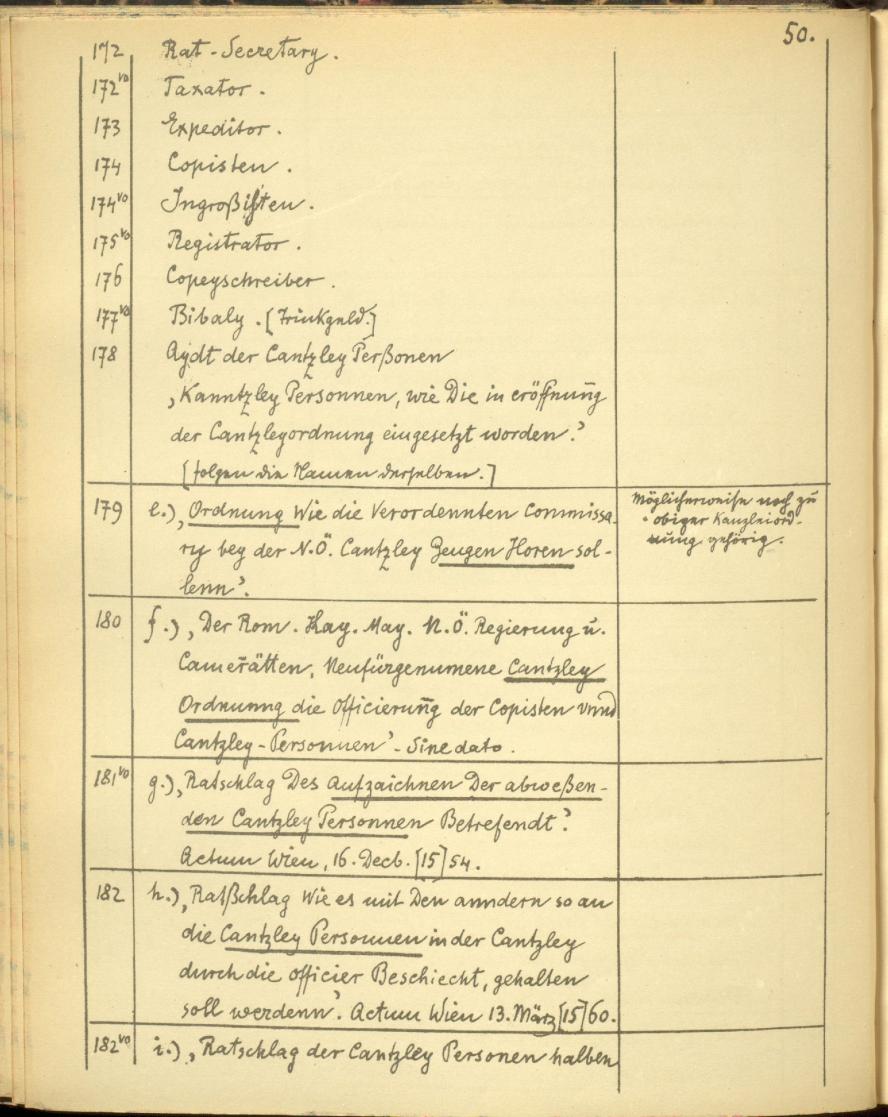 50.
172 Rat-Secretary.
172vo Taxator.
173 Expeditor.
174 Copisten.
174vo Ingroßisten.
175vo Registrator.
176 Copeyschreiber.
177vo Bibaly. [Trinkgeld.]
178 Aydt der Cantzley Perßonen
‚Kanntzley Personnen, wie Die in eröffnung̅
der Cantzleyordnung eingesetzt worden.’
[folgen die Namen derselben.]
179 e.) ‚Ordnung Wie die Verordennten Commissa-
ry bey der N.Ö. Cantzley Zeugen Horen sol-
lenn’.
Möglicherweise noch zu
obiger Kanzleiord-
nung gehörig.
180 f.) ‚Der Rom. Kay. May. N.Ö. Regierung u.
Camerätten, Neufürgenumene Cantzley
Ordnunng die Officierung̅ der Copisten vnnd
Cantzley-Personnen’ - Sine dato.
181vo g.) ‚Ratschlag Des Aufzaichnen Der abweßen-
den Cantzley Personnen Betrefendt.’
Actum Wien, 16. Decb. [15]54.
182 h.) ‚Ratßchlag Wie es mit Den anndern so an
die Cantzley Personnen in der Cantzley
durch die officier Beschiecht, gehalten
soll werdenn’. Actum Wien 13. März [15]60.
182vo i.) ‚Ratschlag der Cantzley Personen halben